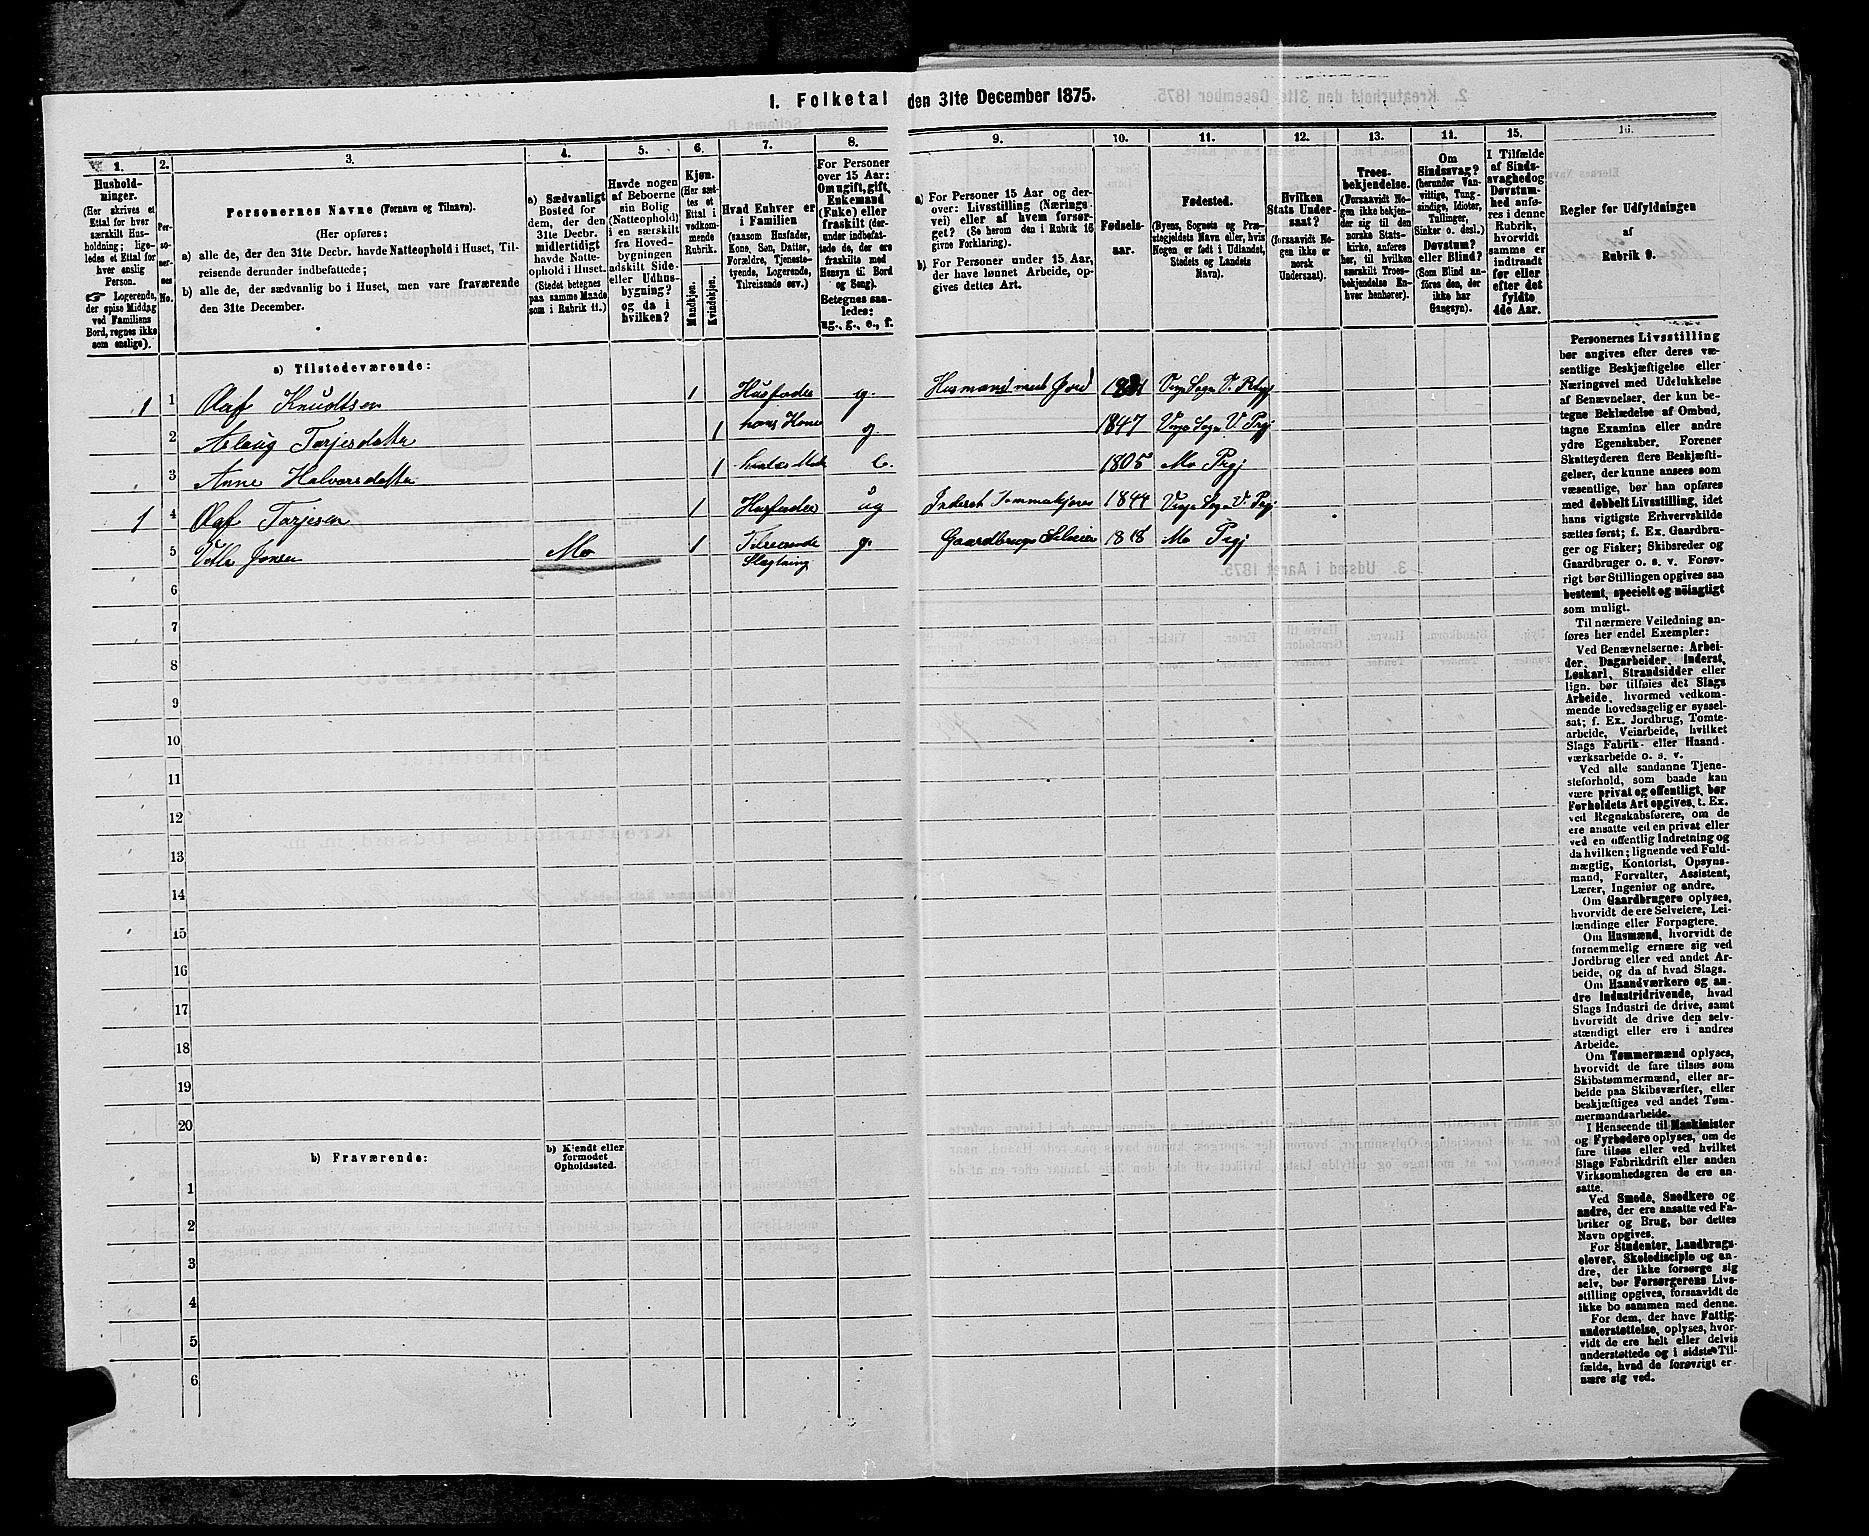 1. Folketal den 31te December 1875.
1. 2. 3. 4. 5. 6. 7. 8. 9. 10. 11. 12. 13. 14. 15. 16.
Hushold-
ninger.
(Her skrives et
Ettal for hver
særskilt Hus-
holdning; lige-
ledes et Ettal for
hver enslig
Person.
☞ Logerende,
der spise Middag
ved Familiens
Bord, regnes ikke
som enslige).
Per-
so-
ner-
nes
No.
Personernes Navne (Fornavn og Tilnavn).
(Her opføres:
a) alle de, der den 31te Decbr. havde Natteophold i Huset, Til-
reisende derunder indbefattede;
b) alle de, der sædvanlig bo i Huset, men vare fraværende
den 31te December.
a) Sædvanligt
Bosted for
dem, der den
31te Decbr.
midlertidigt
havde Natte-
ophold i Huset.
(Stedet betegnes
paa samme Maade
som i Rubrik 11.)
Havde nogen
af Beboerne
sin Bolig
(Natteophold)
i en særskilt
fra Hoved-
bygningen
adskilt Side-
eller Udhus-
bygning?
og da i
hvilken?
Kjøn.
(Her sæt-
tes et
Ettal i
vedkom-
mende
Rubrik.
Mandkjøn.
Kvindekjøn.
Hvad Enhver er
i Familien
(saasom Husfader,
Kone, Søn, Datter,
Forældre, Tjeneste-
tyende, Logerende,
Tilreisende osv.)
For Personer
over 15 Aar:
Om ugift, gift,
Enkemand
(Enke) eller
fraskilt (der-
under indbefat-
tede de, der ere
fraskilte med
Hensyn til Bord
og Seng).
Betegnes saa-
ledes:
ug., g., e., f.
a) For Personer 15 Aar og der-
over: Livsstilling (Nærings-
vei) eller af hvem forsør-
get? (Se herom den i Rubrik 16
givne Forklaring).
b) For Personer under 15 Aar,
der have lønnet Arbeide, op-
gives dettes Art.
Fødsels-
aar.
Fødested.
(Byens, Sognets og Præ-
stegjeldets Navn eller, hvis
Nogen er født i Udlandet,
Stedets og Landets
Navn).
Hvilken
Stats Under-
saat?
(forsaavidt No-
gen ikke er
norsk
Undersaat).
Troes-
bekjendelse.
(Forsaavidt No-
gen ikke bekjen-
der sig til den
norske Stats-
kirke, anføres
her, til hvilken
særskilt Troes-
bekjendelse En-
hver henhører).
Om
Sindssvag?
(herunder Van-
vittige, Tung-
sindige, Idioter,
Tullinger,
Sinker o. desl.).
Døvstum?
eller Blind?
(Som Blind an-
føres den, der
ikke har
Gangsyn).
I Tilfælde
af Sinds-
svaghed og
Døvstum-
hed anfø-
res i denne
Rubrik,
hvorvidt
samme er
indtraadt
før eller
efter det
fyldte
4de Aar.
Regler for Udfyldningen
af
Rubrik 9.
a) Tilstedeværende:
1 1 Olaf Knudtsen 1 Husfader g. Husmand med Jord Vinje Sogn V. Prgj
2 Aslaug Tarjesdatter 1 hans Kone g 1847 Vinje Sogn V. Prgj
3 Anne Halvorsdatter 1 e. 1805 Mo Prgj
1 4 Olaf Tarjesen 1 Husfader ug Inderst Tømmerkjører 1844 Vinje Sogn V. Prgj
5 Vetle Jonsen Mo 1 Tilreisende g. Gaardbruger Selveier 1818 Mo Prgj
Slægtning
6
7
8
9
10
11
12
13
14
15
16
17
18
19
20
b) Fraværende:
b) Kjendt eller
formodet
Opholdssted.
1
2
3
4
5
6
Personernes Livsstilling
bør angives efter deres væ-
sentlige Beskjæftigelse eller
Næringsvei med Udelukkelse
af Benævnelser, der kun be-
tegne Beklædelse af Ombud,
tagne Examina eller andre
ydre Egenskaber. Forener
Skatteyderen flere Beskjæfti-
gelser, der kunne ansees som
væsentlige, bør han opføres
med dobbelt Livsstilling, idet
hans vigtigste Erhvervskilde
sættes først; f. Ex. Gaardbru-
ger og Fisker; Skibsreder og
Gaardbruger o. s. v. Forøv-
rigt bør Stillingen opgives saa
bestemt, specielt og nöiagtigt
som muligt.
Til nærmere Veiledning an-
føres her endel Exempler:
Ved Benævnelserne: Arbei-
der, Dagarbeider, Inderst,
Løskarl, Strandsidder eller
lign. bør tilføies det Slags
Arbeide, hvormed vedkom-
mende hovedsagelig er syssel-
sat; f. Ex. Jordbrug, Tomte-
arbeide, Veiarbeide, hvilket
Slags Fabrik- eller Haand-
værksarbeide o. s. v.
Ved alle saadanne Tjene-
steforhold, som baade kan
være privat og offentligt, bør
Forholdets Art opgives, t. Ex.
ved Regnskabsførere, om de
ere ansatte ved en privat eller
ved en offentlig Indretning og
da hvilken; lignende ved Fuld-
mægtig, Kontorist, Opsyns-
mand, Forvalter, Assistent,
Lærer, Ingeniør og andre.
Om Gaardbrugere oplyses,
hvorvidt de ere Selveiere, Lei-
lændinge eller Forpagtere.
Om Husmænd, hvorvidt de
fornemmelig ernære sig ved
Jordbrug eller ved andet Ar-
beide, og da af hvad Slags.
Om Haandværkere og an-
dre Industridrivende, hvad
Slags Industri de drive, samt
hvorvidt de drive den selv-
stændigt eller ere i andres
Arbeide.
Om Tømmermænd oplyses,
hvorvidt de fare tilsøs som
Skibstømmermænd, eller ar-
beide paa Skibsværfter, eller
beskjæftiges ved andet Tøm-
mermandsarbeide.
I Henseende til Maskinister
og Fyrbødere oplyses, om de
fare tilsøs eller ved hvilket
Slags Fabrikdrift eller anden
Virksomhedsgren de ere an-
satte.
Ved Smede, Snedkere og
andre, der ere ansatte ved Fa-
briker og Brug, bør dettes
Navn opgives.
For Studenter, Landbrugs-
elever, Skoledisciple og an-
dre, der ikke forsørge sig
selv, bør Forsørgerens Livs-
stilling opgives, forsaavidt de
ikke bo sammen med denne.
For dem, der have Fattig-
understøttelse, oplyses, hvor-
vidt de ere helt eller delvis
understøttede og i sidste Til-
fælde, hvad de forøvrigt er-
nære sig ved.